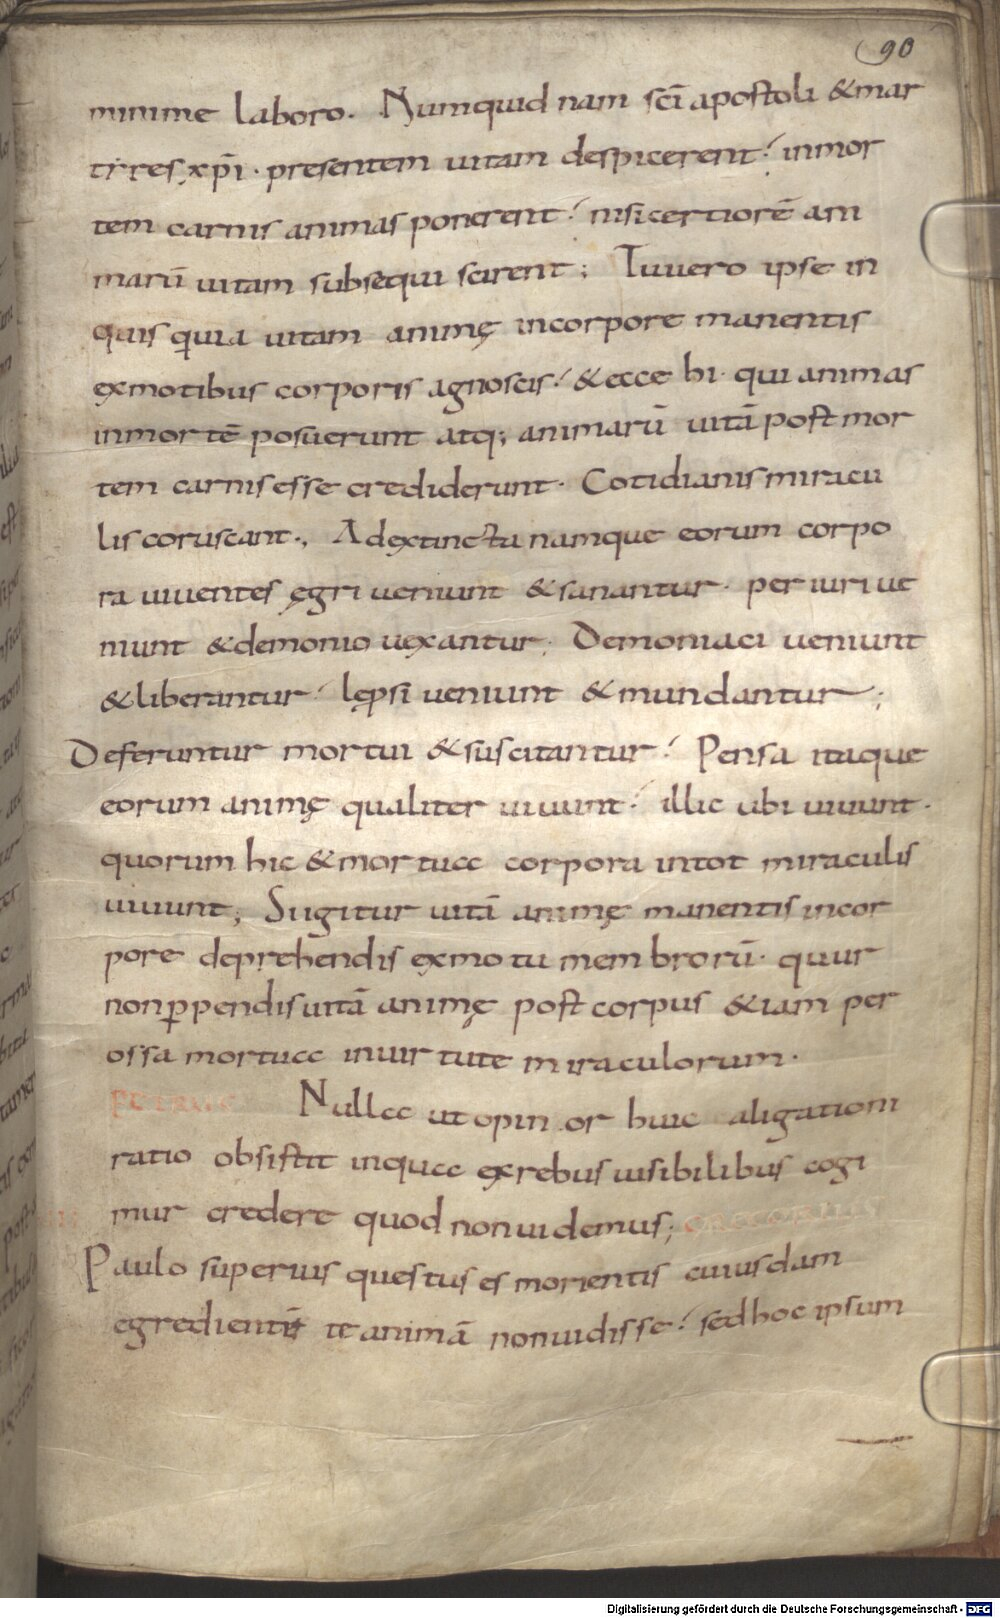 90
minime laboro. Numquid nam scī apostoli &mar
tires xp̄i · presentem uitam despicerent? inmor
tem carnis animas ponerent? nisi certiorē ani
marū uitam subsequi scirent; Tu uero ipse in
quis quia uitam animę incorpore manentis
exmotibus corporis agnoscis? &ecce hi· qui animas
inmortē posuerunt atq; animarū uitā post mor
tem carnis esse crediderunt· Cotidianis miracu
lis coruscant., Ad extincta namque eorum corpo
ra uiuentes ęgri ueniunt &sanantur· periuri ue
niunt &demonio uexantur; Demoniaci ueniunt
&liberantur? lęp̄si ueniunt &mundantur;
Deferuntur mortui &suscitantur? Pensa itaque
eorum animę qualiter uiuunt? illic ubi uiuunt·
quorum hic &mortua corpora intot miraculis
uiuunt; Si igitur uitā animę manentis incor
pore deprehendis exmotu membrorū· quur
non p̱pendis uitā animę post corpus &iam per
ossa mortua in uirtute miraculorum·
PETRUS Nulla ut opinor huic aligationi
ratio obsistit inqua exrebus uisibilibus cogi
mur credere quod non uidemus; GREGORIUS
Paulo superius questus es morientis cuiusdam
egredientē te animā non uidisse? sed hoc ipsum
Digitalisierung gefördert durch die Deutsche Forschungsgemeinschaft - DFG